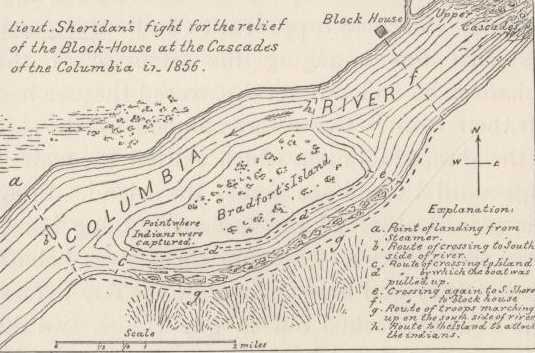 Lieut. Sheridan's fight for the relief
of the Block-House at the Cascades
of the Columbia in 1856.
Block House
Upper
Cascades
f
h
COLUMBIA RIVER
a
b
Bradfort's Island
Point where
Indians were
captured.
c
d
d
e
g
g
N
W
E
Explanation:
a. Point of landing from
Steamer.
b. Route of crossing to South
side of river.
c. Route of crossing to Island
d " by which the boat was
pulled up.
e. Crossing again to S. Shore
f. " to block house
g. Route of troops marching
up on the south side of river
h. Route to the Island to attack
the indians.
Scale
2 miles